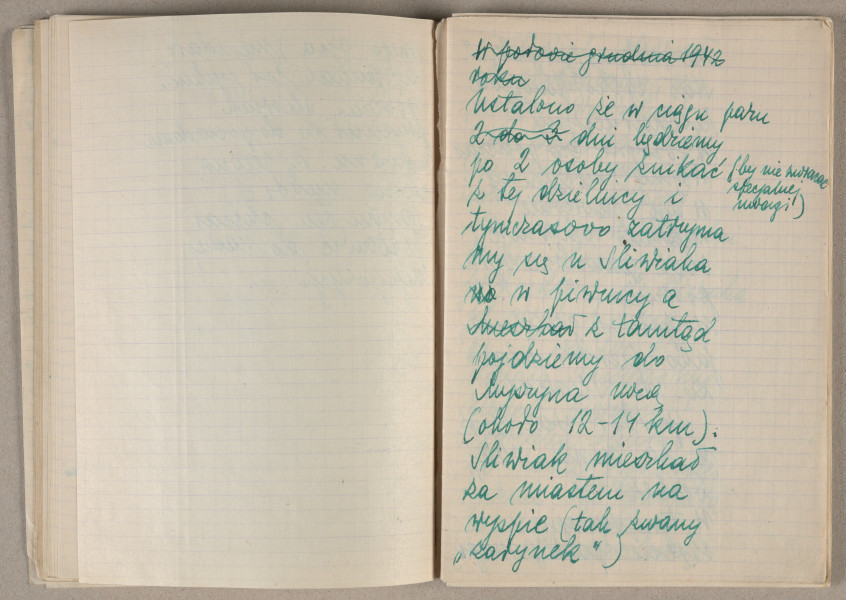 W połowie grudnia 1942
roku
Ustalono że w ciągu paru
2 do 3 dni będziemy
po 2 osoby znikać (by nie zwracać
specjalnej
uwagi!)
z tej dzielnicy i
tymczasowo zatrzyma
my się u Śliwiaka
w piwnicy a
mieszkał z tamtąd
pójdziemy do
nocą
(około 12-14 km).
Śliwiak mieszkał
za miastem na
wyspie (tak zwany
„zarynek")